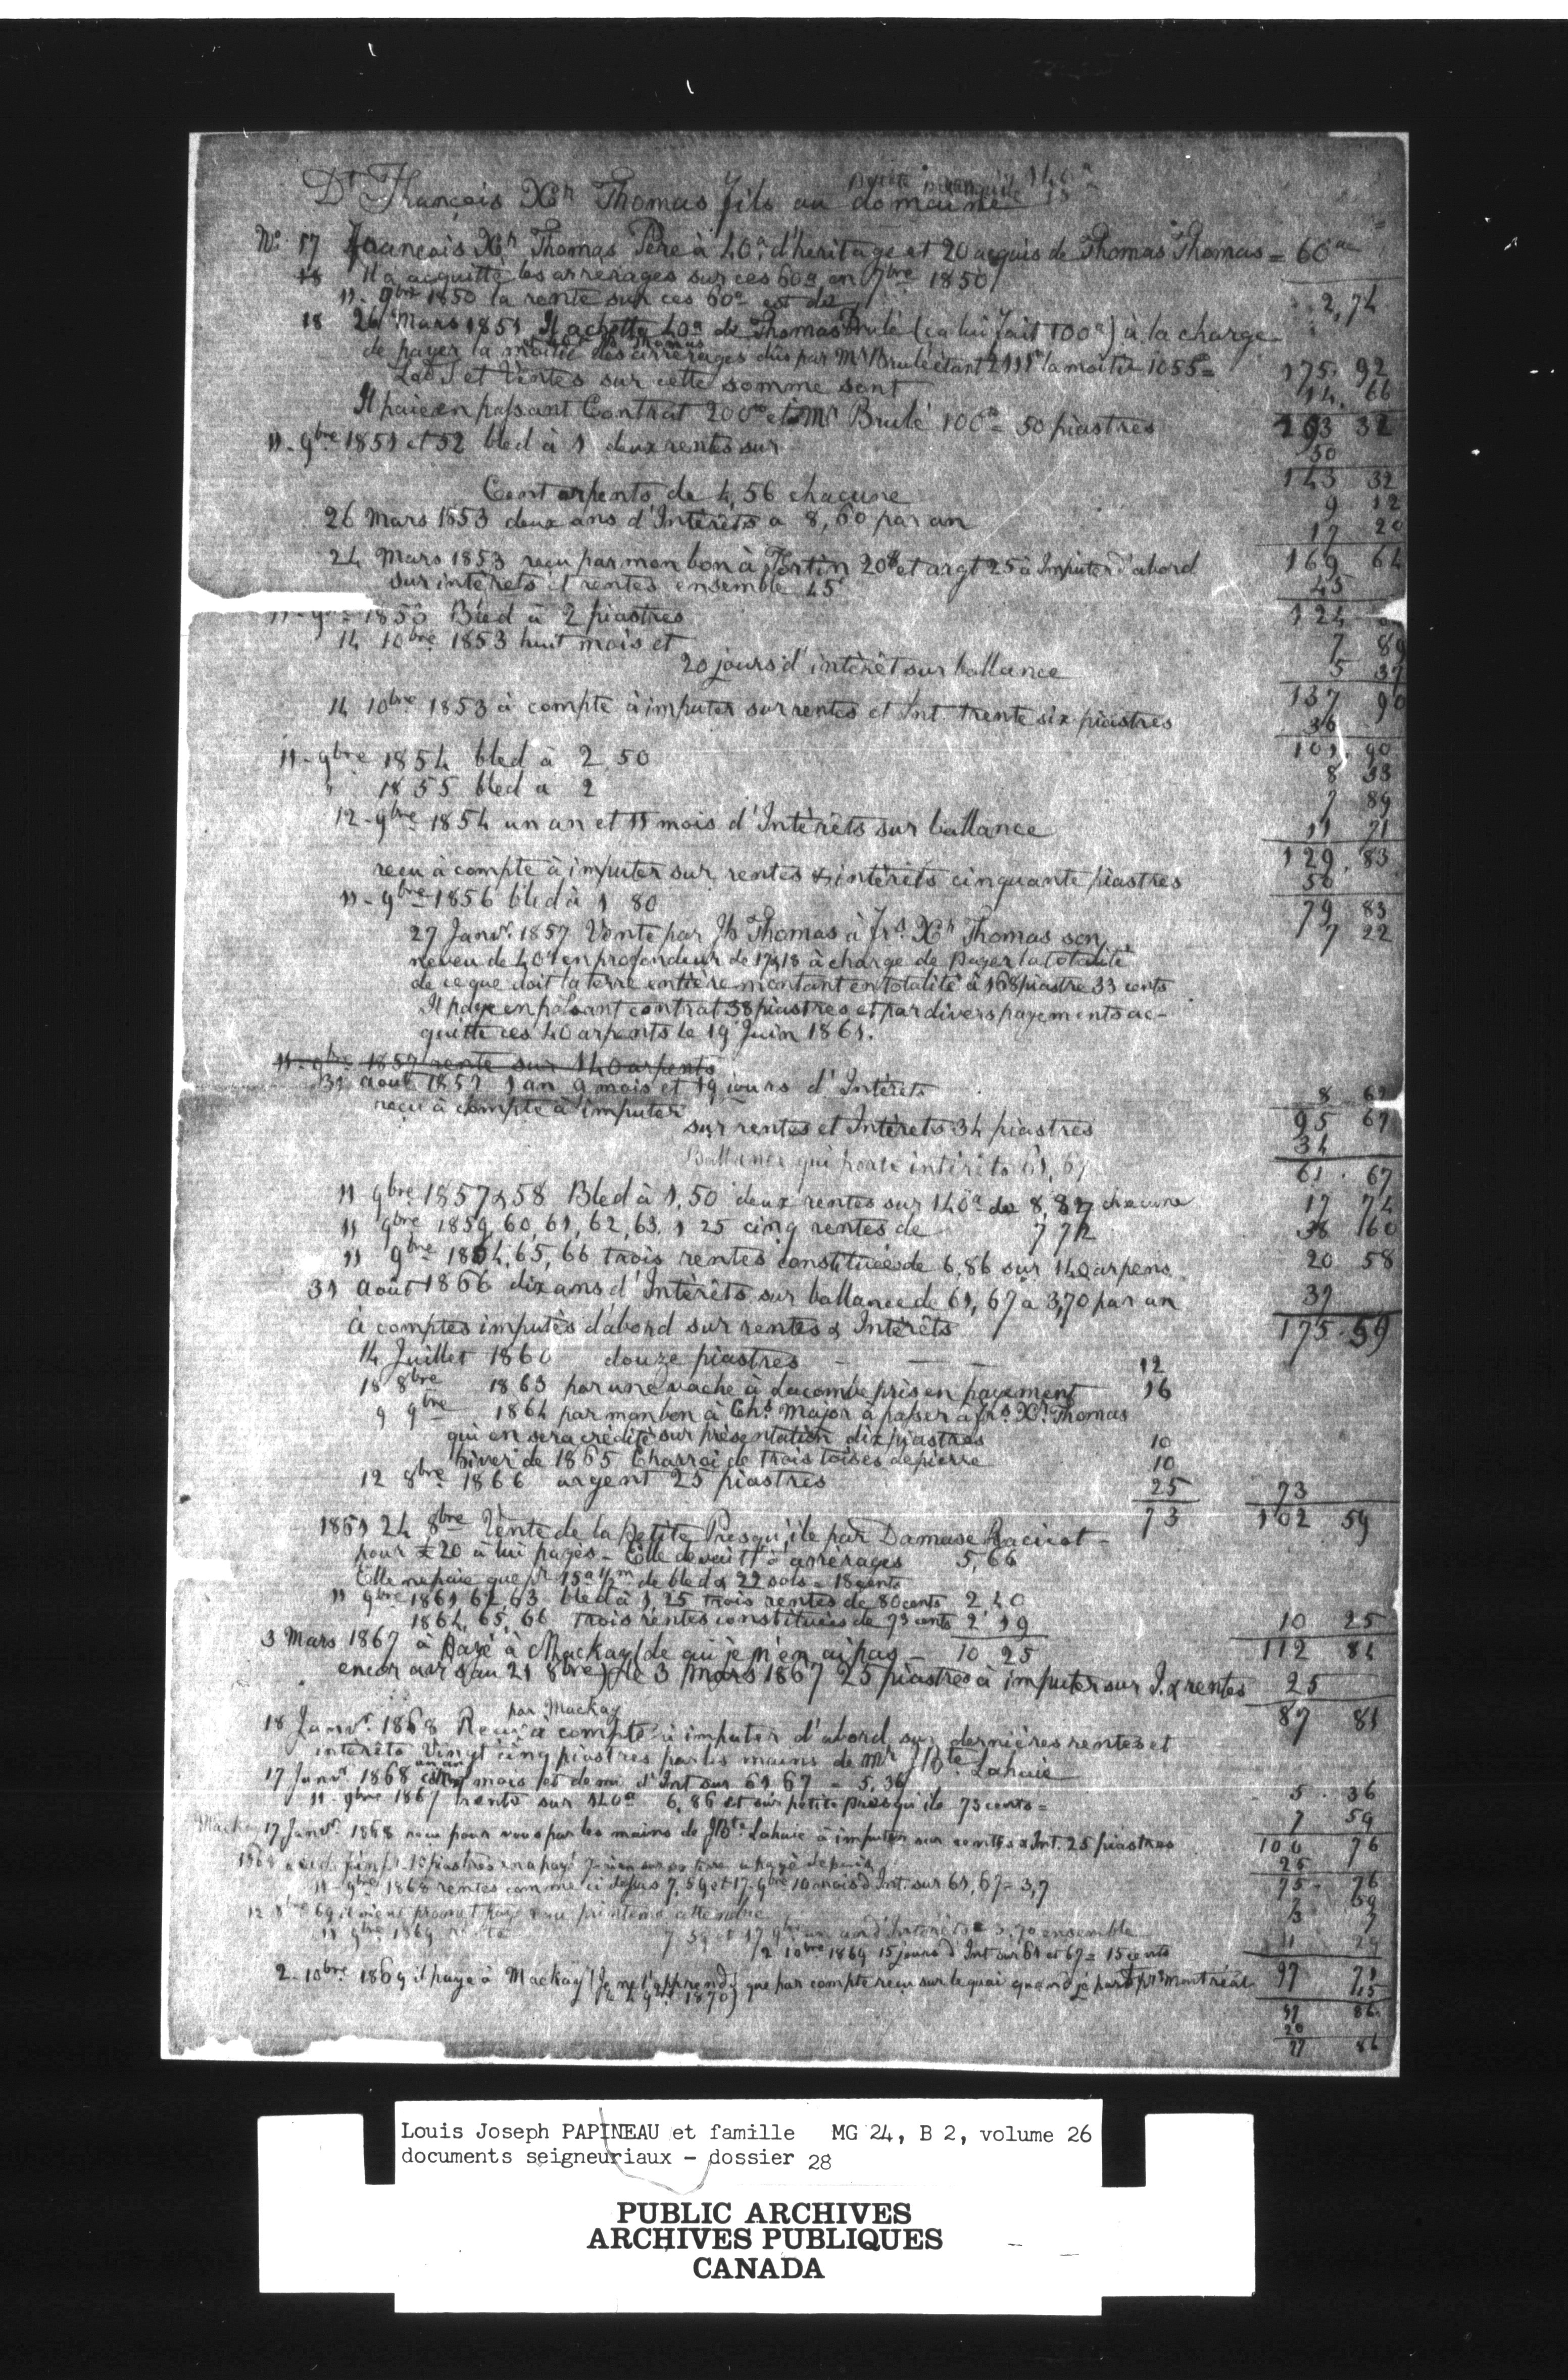 Dr François Xr Thomas fils au domaine
No 17 François Xr Thomas Père à 40a d'heritage et 20 acquis de Thomas Thomas = 60ac
18 Il a acquitté les arrerages sur ces 60a en 9bre 1850
11 - 9bre 1850 la rente sur ces 60a est de 2,74
18 26 Mars 1851 Il achette 40a de Thomas Brulé (ca lui fait 100a) à la charge
de payer la moitié des arrérages dus par Mr Brulé étant 2111 la moitié 1055 = 175. 92
Lods et Ventes sur cette somme sont 14. 66
Il paie en passant Contrat 200 et Mr Brulé 100 = 50 piastres 193 32
11 - 9bre 1851 et 52 bled à 1 deux rentes sur 50
143 32
Cent arpents de 4,56 chacune 9 12
26 Mars 1853 deux ans d'Intérêts a 8,60 par an 17 20
24 Mars 1853 reçu par mon bon à Fortin 20 et argt 25 à Imputer d'abord 169 64
sur intérêts et rentes ensemble 45 45
11 - 9bre 1853 Bled à 2 piastres 124
14 10bre 1853 huit mois et 7 89
20 jours d'intérêt sur ballance 5 37
137 90
14 10bre 1853 à compte à imputer sur rentes et Int. trente six piastres 36
101. 90
11 - 9bre 1854 bled à 2,50 8 33
" 1855 bled à 2 7 89
12 - 9bre 1854 un an et 11 mois d'Intérêts sur ballance 11 71
129. 83
reçu à compte à imputer sur rentes & intérêts cinquante piastres 50
11 - 9bre 1856 bled à 1 80 79 83
27 Janvr. 1857 Vente par Jh Thomas à Frs. Xr Thomas son 7 22
neveu de 40a en profondeur de 17 & 18 à charge de payer la totalité
de ce que doit la terre entière montant en totalité à 168 piastre 33 cents
Il paye en passant contrat 38 piastres et par divers payements ac-
quitte ces 40 arpents le 19 Juin 1861.
11 - 9bre 1857 rente sur 140 arpents
31 aout 1857 1 an 9 mois et 19 jours d'Intérêts 8 62
reçu à compte à imputer
sur rentes et Intérêts 34 piastres 95 67
34
Ballance qui porte intérêts 61,67 61. 67
11 9bre 1857 & 58 Bled à 1,50 deux rentes sur 140a de 8,87 chacune 17 74
11 9bre 1859, 60, 61, 62, 63. 1 25 cinq rentes de 7 72 38 60
11 9bre 1864, 65, 66 trois rentes constituées de 6,86 sur 140 arpens 20 58
31 août 1866 dix ans d'Intérêts sur ballance de 61,67 a 3,70 par an 37
à comptes imputés d'abord sur rentes & Intérêts 175. 59
14 Juillet 1860 douze piastres 12
18 8bre 1863 par une vache à Lacombe pris en payement 16
9 9bre 1864 par mon bon à Chs. Major à passer à Frs. Xr. Thomas
qui en sera crédité sur présentation dix piastres 10
hiver de 1865 Charroi de trois toises de pierre 10
12 8bre 1866 argent 25 piastres 25 73
73 102 59
1861 24 8bre Vente de la petite Presqu'ile par Damase Racicot -
pour £20 à lui payés - Elle devait d'arrérages 5,66
Elle ne paie que pr 15a 1/2 m de bled & 22 sols = 18 cents
11 9bre 1861, 62, 63 bled à 1,25 trois rentes de 80 cents 2 40
1864, 65, 66 trois rentes constituées de 73 cents 2 19 10 25
3 Mars 1867 à Payé à Mackay (de qui je n'en ai pas 10 25 112 84
encor avis au 21 8bre) le 3 mars 1867 25 piastres à imputer sur I. & rentes 25
87 81
par Mackay
18 Janvr. 1868 Reçu à compte à imputer d'abord sur dernières rentes et
intérêts Vingt cinq piastres par les mains de Mr JBte. Lahaie
17 Janvr 1868 mois et demi d'Int sur 61,67 = 5,36 5. 36
11 - 9bre 1867 rente sur 140a 6,86 et sur petite presqu'ile 73 cents = 7 59
Mackay 17 Janvr. 1868 reçu pour vous par les mains de JBte Lahaie à imputer sur rentes & Int. 25 piastres 100 76
25
11 - 9bre 1868 rentes comme ci dessus 7,59 et 17 9bre 10 mois d'Int. sur 61,67 = 3,7 75 76
7 59
3 7
11 9bre 1869 7 59 et 17 9bre un an d'Intérêts 3,70 ensemble 11 29
2 10bre 1869 15 jours d'Int sur 61 et 67 = 15 cents
2 - 10bre 1869 il paye à Mackay (Je ne l'apprends que par compte reçu sur le quai quand je pars pr Montréal 97 71
1870) 15
97 86
20
77 86
Louis Joseph PAPINEAU et famille MG 24, B 2, volume 26
documents seigneuriaux - dossier 28
PUBLIC ARCHIVES
ARCHIVES PUBLIQUES
CANADA